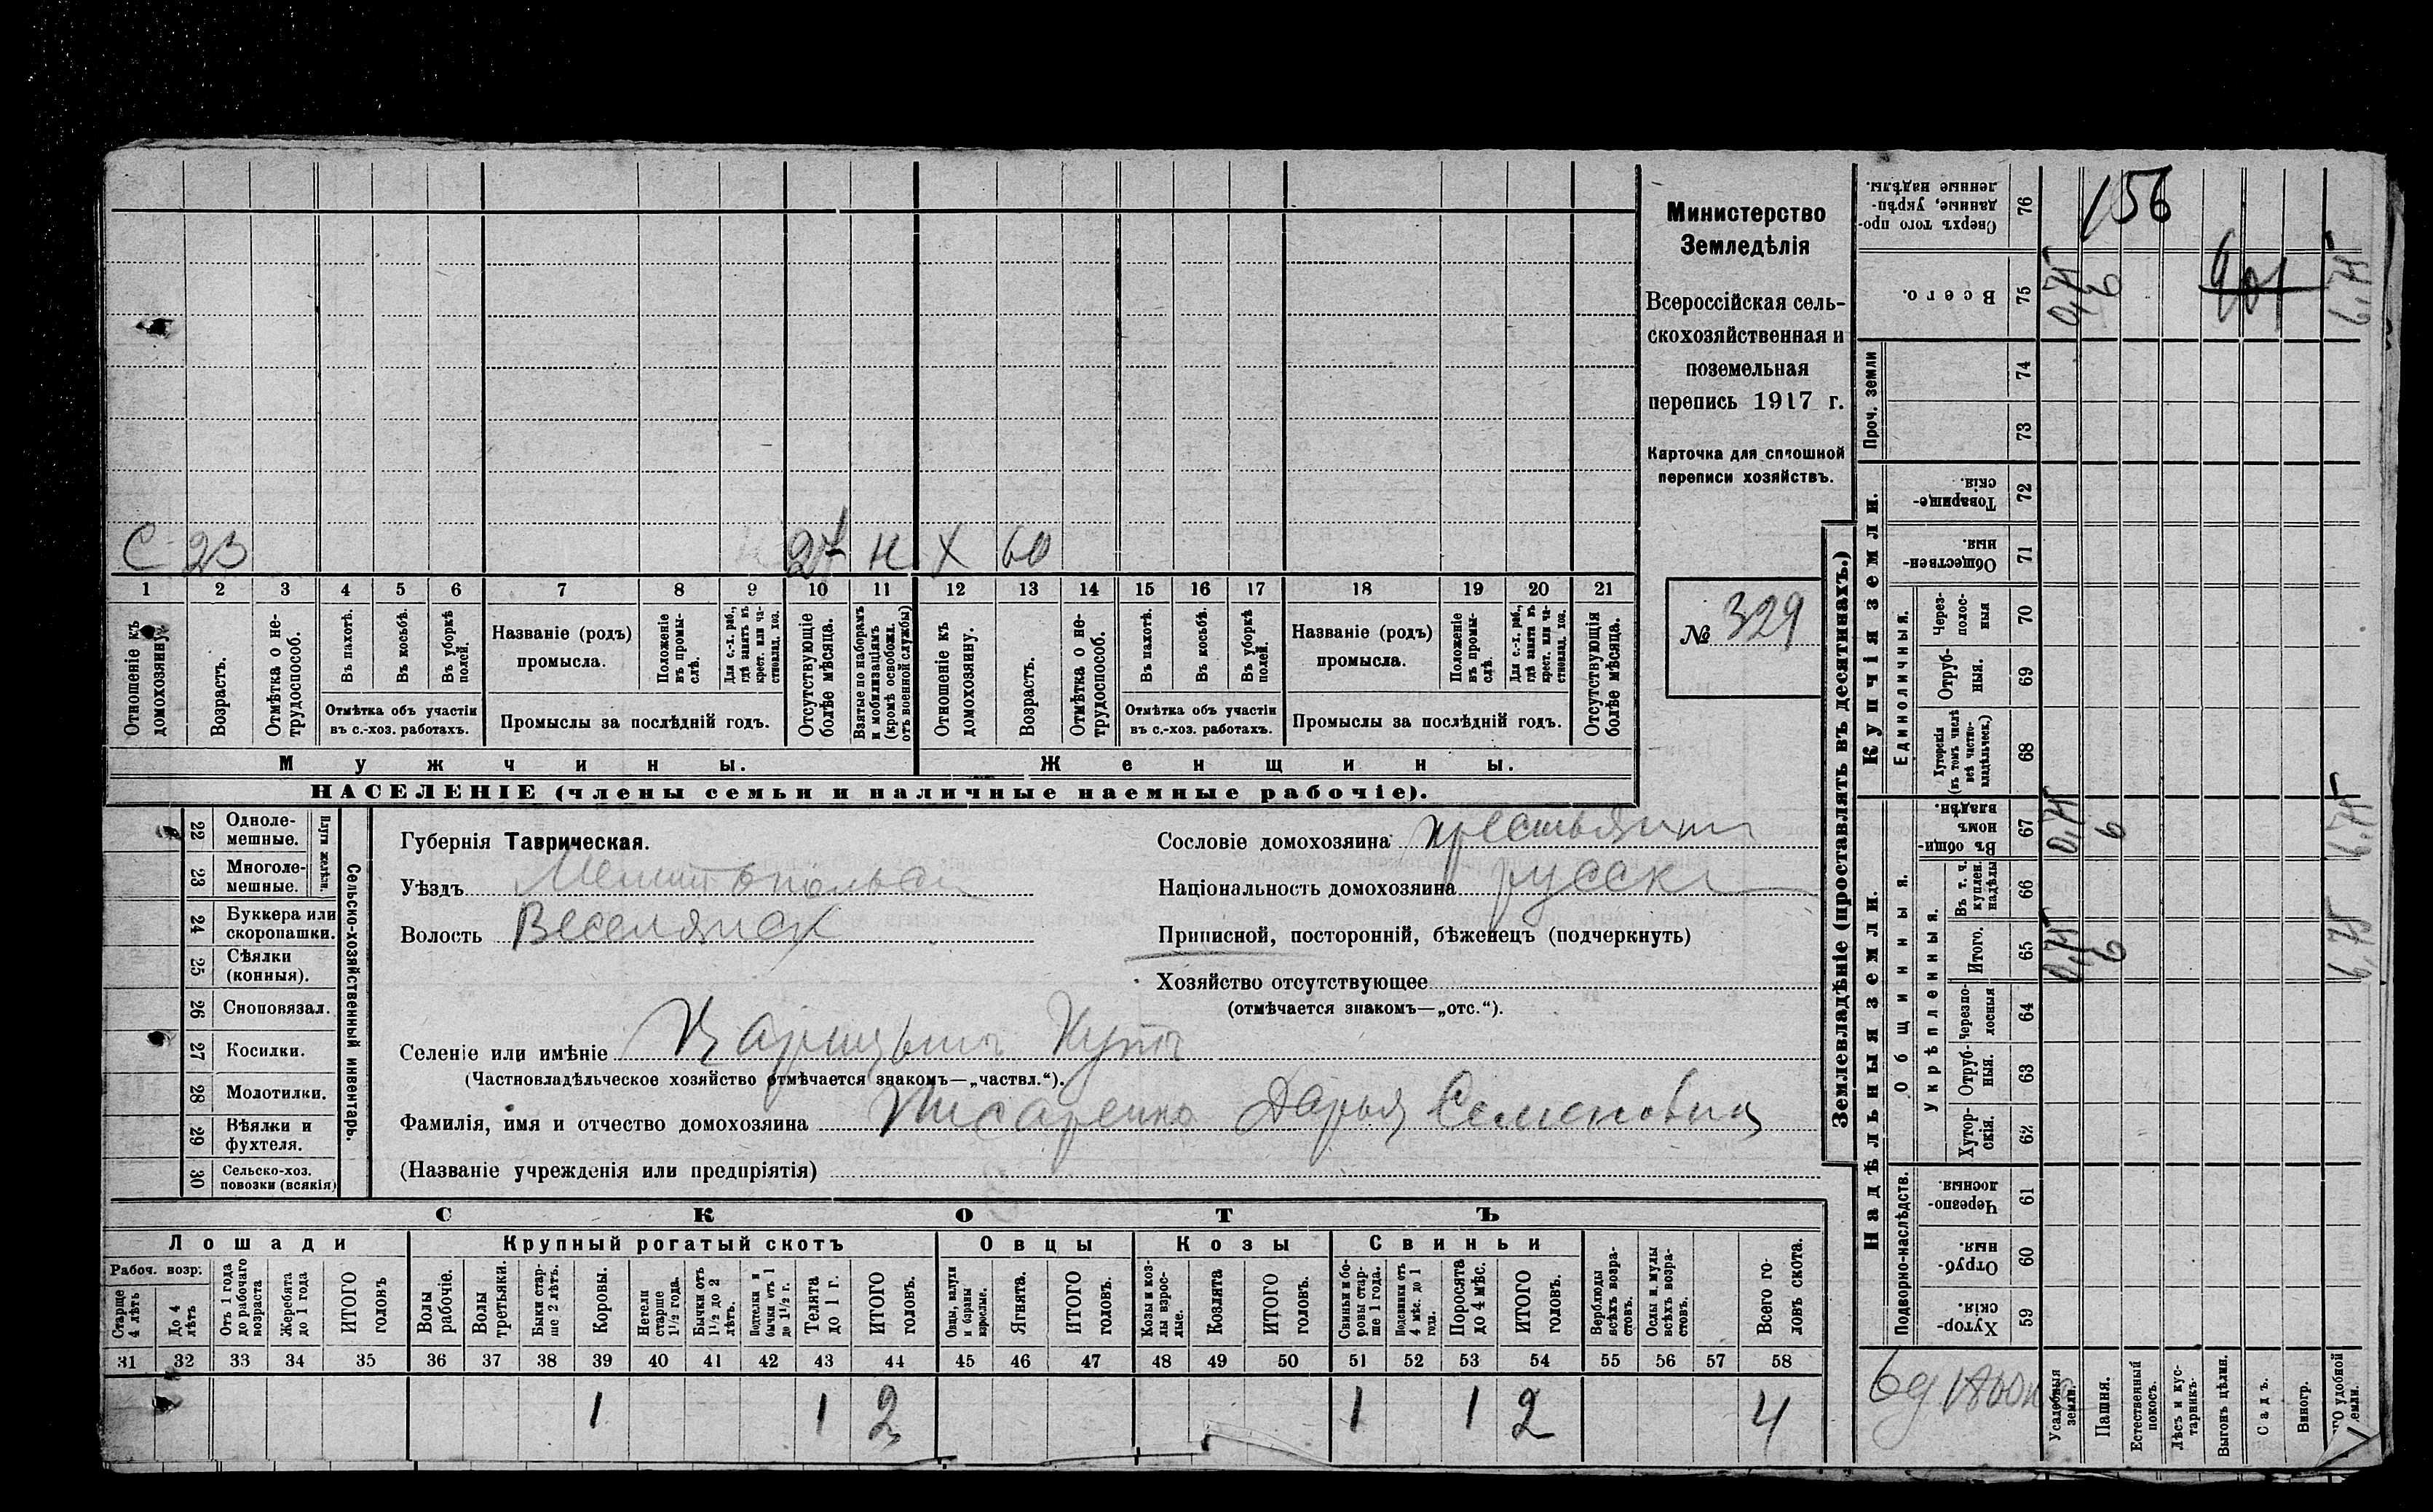 Министерство
Земледѣлія
Всероссійская сель-
скохозяйственная и
поземельная
перепись 1917 г.
Карточка для сплошной
переписи хозяйствъ.
№ 329
С 23 24 н Х 60
1 2 3 4 5 6 7 8 9 10 11 12 13 14 15 16 17 18 19 20 21
Отношеніе къ домохозяину.
Возрастъ.
Отмѣтка о не-трудоспособ.
Въ пахотѣ.
Въ косьбѣ.
Въ уборкѣ полей.
Отмѣтка объ участіи въ с.-хоз. работахъ.
Названіе (родъ) промысла.
Положеніе въ промы-слѣ.
Для с.-х. раб., гдѣ занятъ въ крест. или ча-стновлад. хоз.
Промыслы за послѣдній годъ.
Отсутствующіе болѣе мѣсяца.
Взятые по наборамъ и мобилизаціямъ (кромѣ освобожд. отъ военной службы)
Отношеніе къ домохозяину.
Возрастъ.
Отмѣтка о не-трудоспособ.
Въ пахотѣ.
Въ косьбѣ.
Въ уборкѣ полей.
Отмѣтка объ участіи въ с.-хоз. работахъ.
Названіе (родъ) промысла.
Положеніе въ промы-слѣ.
Для с.-х. раб., гдѣ занятъ въ крест. или ча-стновлад. хоз.
Промыслы за послѣдній годъ.
Отсутствующія болѣе мѣсяца.
Мужчины. Женщины.
НАСЕЛЕНІЕ (члены семьи и наличные наемные рабочіе).
Сельско-хозяйственный инвентарь.
Плуги желѣзн.
22 Одноле-мешные.
23 Многоле-мешные.
24 Буккера или скоропашки.
25 Сѣялки (конныя).
26 Сноповязал.
27 Косилки.
28 Молотилки.
29 Вѣялки и фухтеля.
30 Сельско-хоз. повозки (всякія)
Губернія Таврическая.
Уѣздъ Мелитопольск
Волость Веселянск
Сословіе домохозяина крестьянин
Національность домохозяина русск
Приписной, посторонній, бѣженецъ (подчеркнуть)
Хозяйство отсутствующее
(отмѣчается знакомъ—„отс.“).
Селеніе или имѣніе Царицынъ Кутъ
(Частновладѣльческое хозяйство отмѣчается знакомъ—„частвл.“).
Фамилія, имя и отчество домохозяина Писаренко Дарья Семеновна
(Названіе учрежденія или предпріятія)
СКОТЪ
Лошади Крупный рогатый скотъ Овцы Козы Свиньи
Рабоч. возр.
Старше 4 лѣтъ
До 4 лѣтъ
Отъ 1 года до рабочаго возраста
Жеребята до 1 года
ИТОГО головъ
Волы рабочіе.
Волы третьяки.
Быки стар-ше 2 лѣтъ.
Коровы.
Нетели старше 1½ года.
Бычки отъ 1½ до 2 лѣтъ.
Подтелки и бычки отъ 1 до 1½ г.
Телята до 1 г.
ИТОГО головъ.
Овцы, валухи и бараны взрослые.
Ягнята.
ИТОГО головъ.
Козы и коз-лы взрос-лые.
Козлята
ИТОГО головъ.
Свиньи и бо-ровы стар-ше 1 года.
Подсвинки отъ 4 мѣс. до 1 года.
Поросята до 4 мѣс.
ИТОГО головъ.
Верблюды всѣхъ возра-стовъ.
Ослы и мулы всѣхъ возра-стовъ.
Всего го-ловъ скота.
31 32 33 34 35 36 37 38 39 40 41 42 43 44 45 46 47 48 49 50 51 52 53 54 55 56 57 58
1 1 2 1 1 2 4
Землевладѣніе (проставлять въ десятинахъ.)
Надѣльныя земли. Купчія земли. Проч. земли
Подворно-наслѣдств.
Общинныя.
Укрѣпленныя.
Единоличныя.
59 Хутор-скія.
60 Отруб-ныя.
61 Черезпо-лосныя.
62 Хутор-скія.
63 Отруб-ныя.
64 Черезпо-лосныя
65 Итого.
66 Въ т. ч. куплен. надѣлы
67 Въ общи-номъ владѣн.
68 Хуторскія (въ томъ числѣ всѣ частно-владѣльческ.)
69 Отруб-ныя.
70 Через-полос-ныя
71 Обществен-ныя
72 Товарище-скія.
73
74
75 Всего.
76 Сверхъ того про-данные, укрѣп-ленные надѣлы.
Усадебныя земли.
Пашня.
Естественный покосъ.
Лѣсъ и кус-тарникъ.
Выгонъ цѣлин.
Садъ.
Виногр.
156
0,75 6 6,75
0,75 6 6,75
0,75 6 6,75